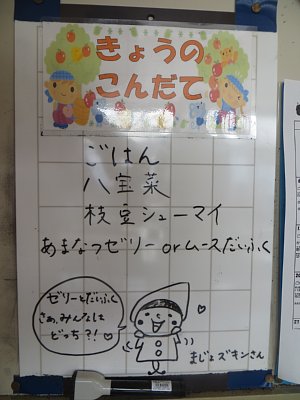 きょうの
こんだて
ごはん
八宝菜
枝豆シューマイ
あまなつゼリー orムースだいふく
ゼリーとだいふく
さぁ、みんなは
どっち?!
まじょズキンさん